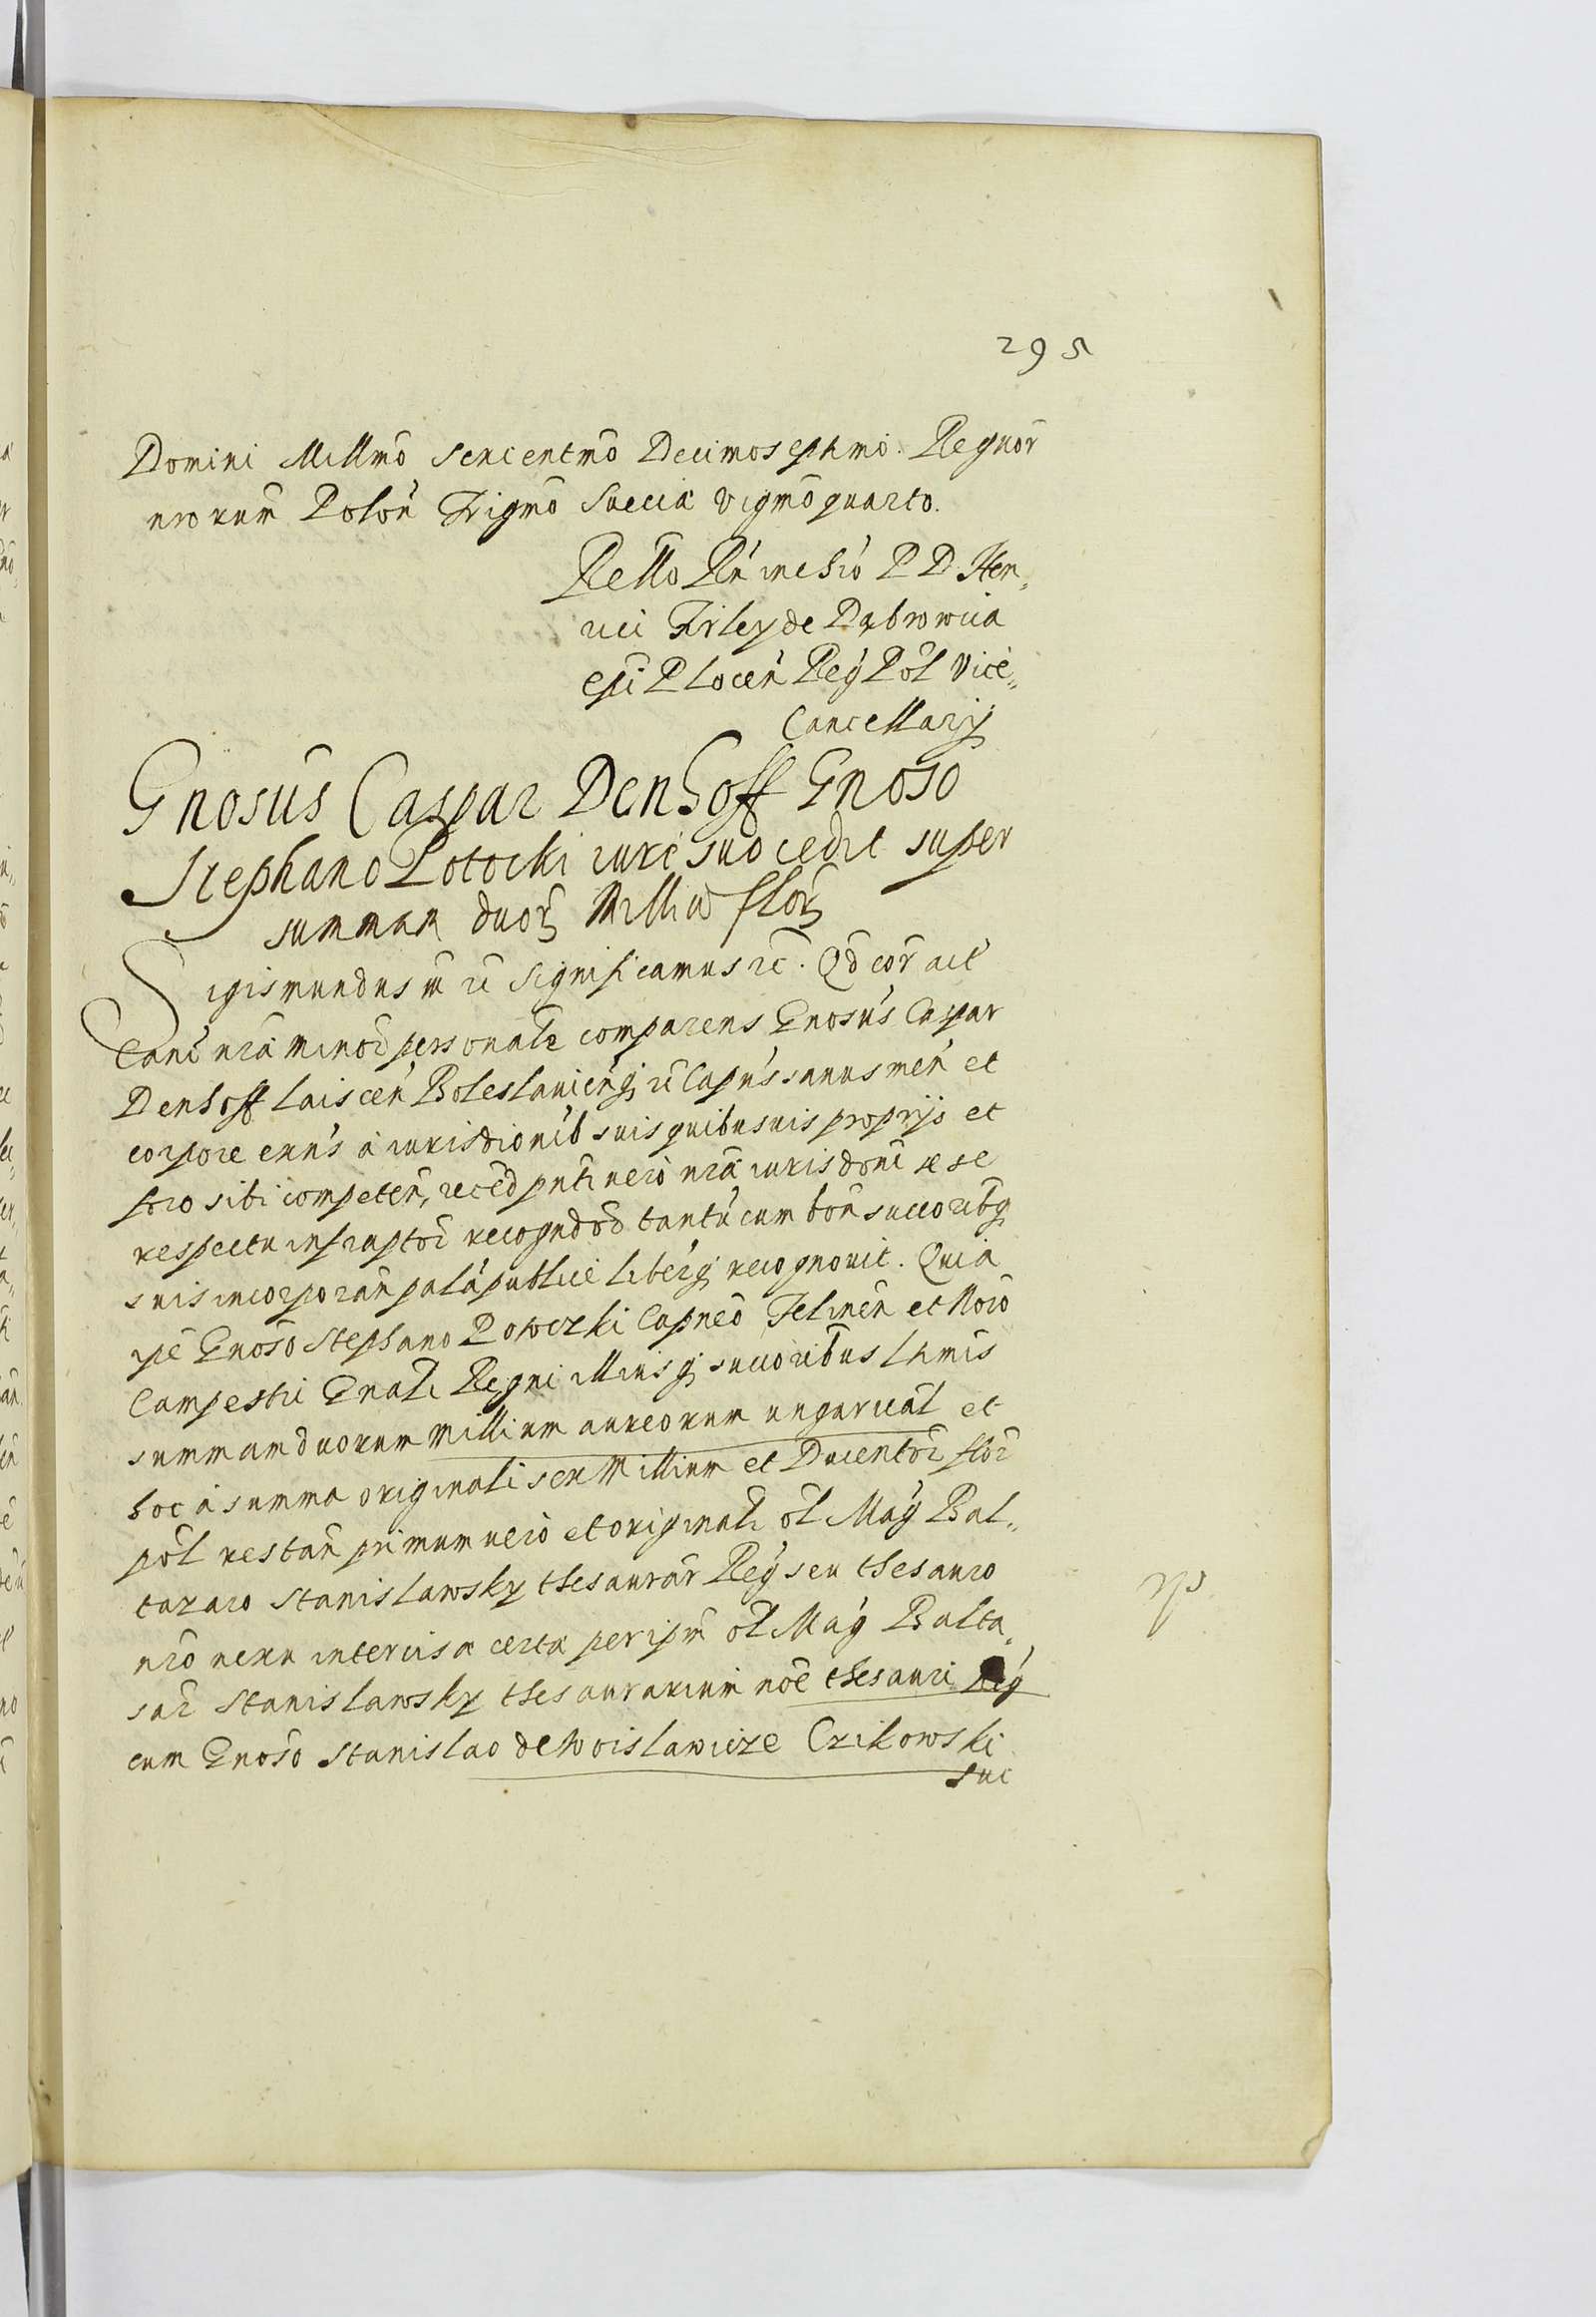 295
Domini Millmō sexcentmō Decimoseptmō. Regnor̄
nrorum Polon̄ Trigmō Sueciæ vigmō quarto.
Rello Rn̄ in chro P D Hen„
rici Firley de Dąbrowica
epī Plocen̄ Reg̃ Pol Vice„
Cancellarij
Gnosus Caspar Denhoff Gnoso
Stephano Potocki iure suo cedit super
summam duorꝝ Milliū florꝝ
Sigismundus iii etc Significamus etc. Qd cor̄ act
Canc̄ nrā minori personalr comparens Gnosus Caspar
Denhoff Laiscen̄ Boleslauicenq; etc Capn̄s sanus mēn et
corpore exn̄s à iurisdionib suis quibusuis proprijs et
foro sibi competen̄, reced pn̄ti vero nrā iurisdoni se se
respectu infrapto recogndod tantū cum bon̄ succoribq
suis incorporan̄ palā publice liberq; recognouit. Quia
ipē Gnoso Stephano Potoczki Capneo Felinen̄ et Noro
Campestri Gnali Regni illiusq; succoribus Ltmis
summam duorum millium aureorum ungarical et
hoc à summa originali sex Millium et Ducentor flor
pol restan̄ primum vero et originali ol Mag̃ Bal„
tazaro Stanislawsky thesaurar̄ Reg̃ seu thesauro
nro nexu intercisa certa per ipm̄ ol Mag̃ Balta„
sar Stanislawsky thesaurarium noe thesauri Reg̃
cum Gnoso Stanislao de Woislawicze Czikowski
suc